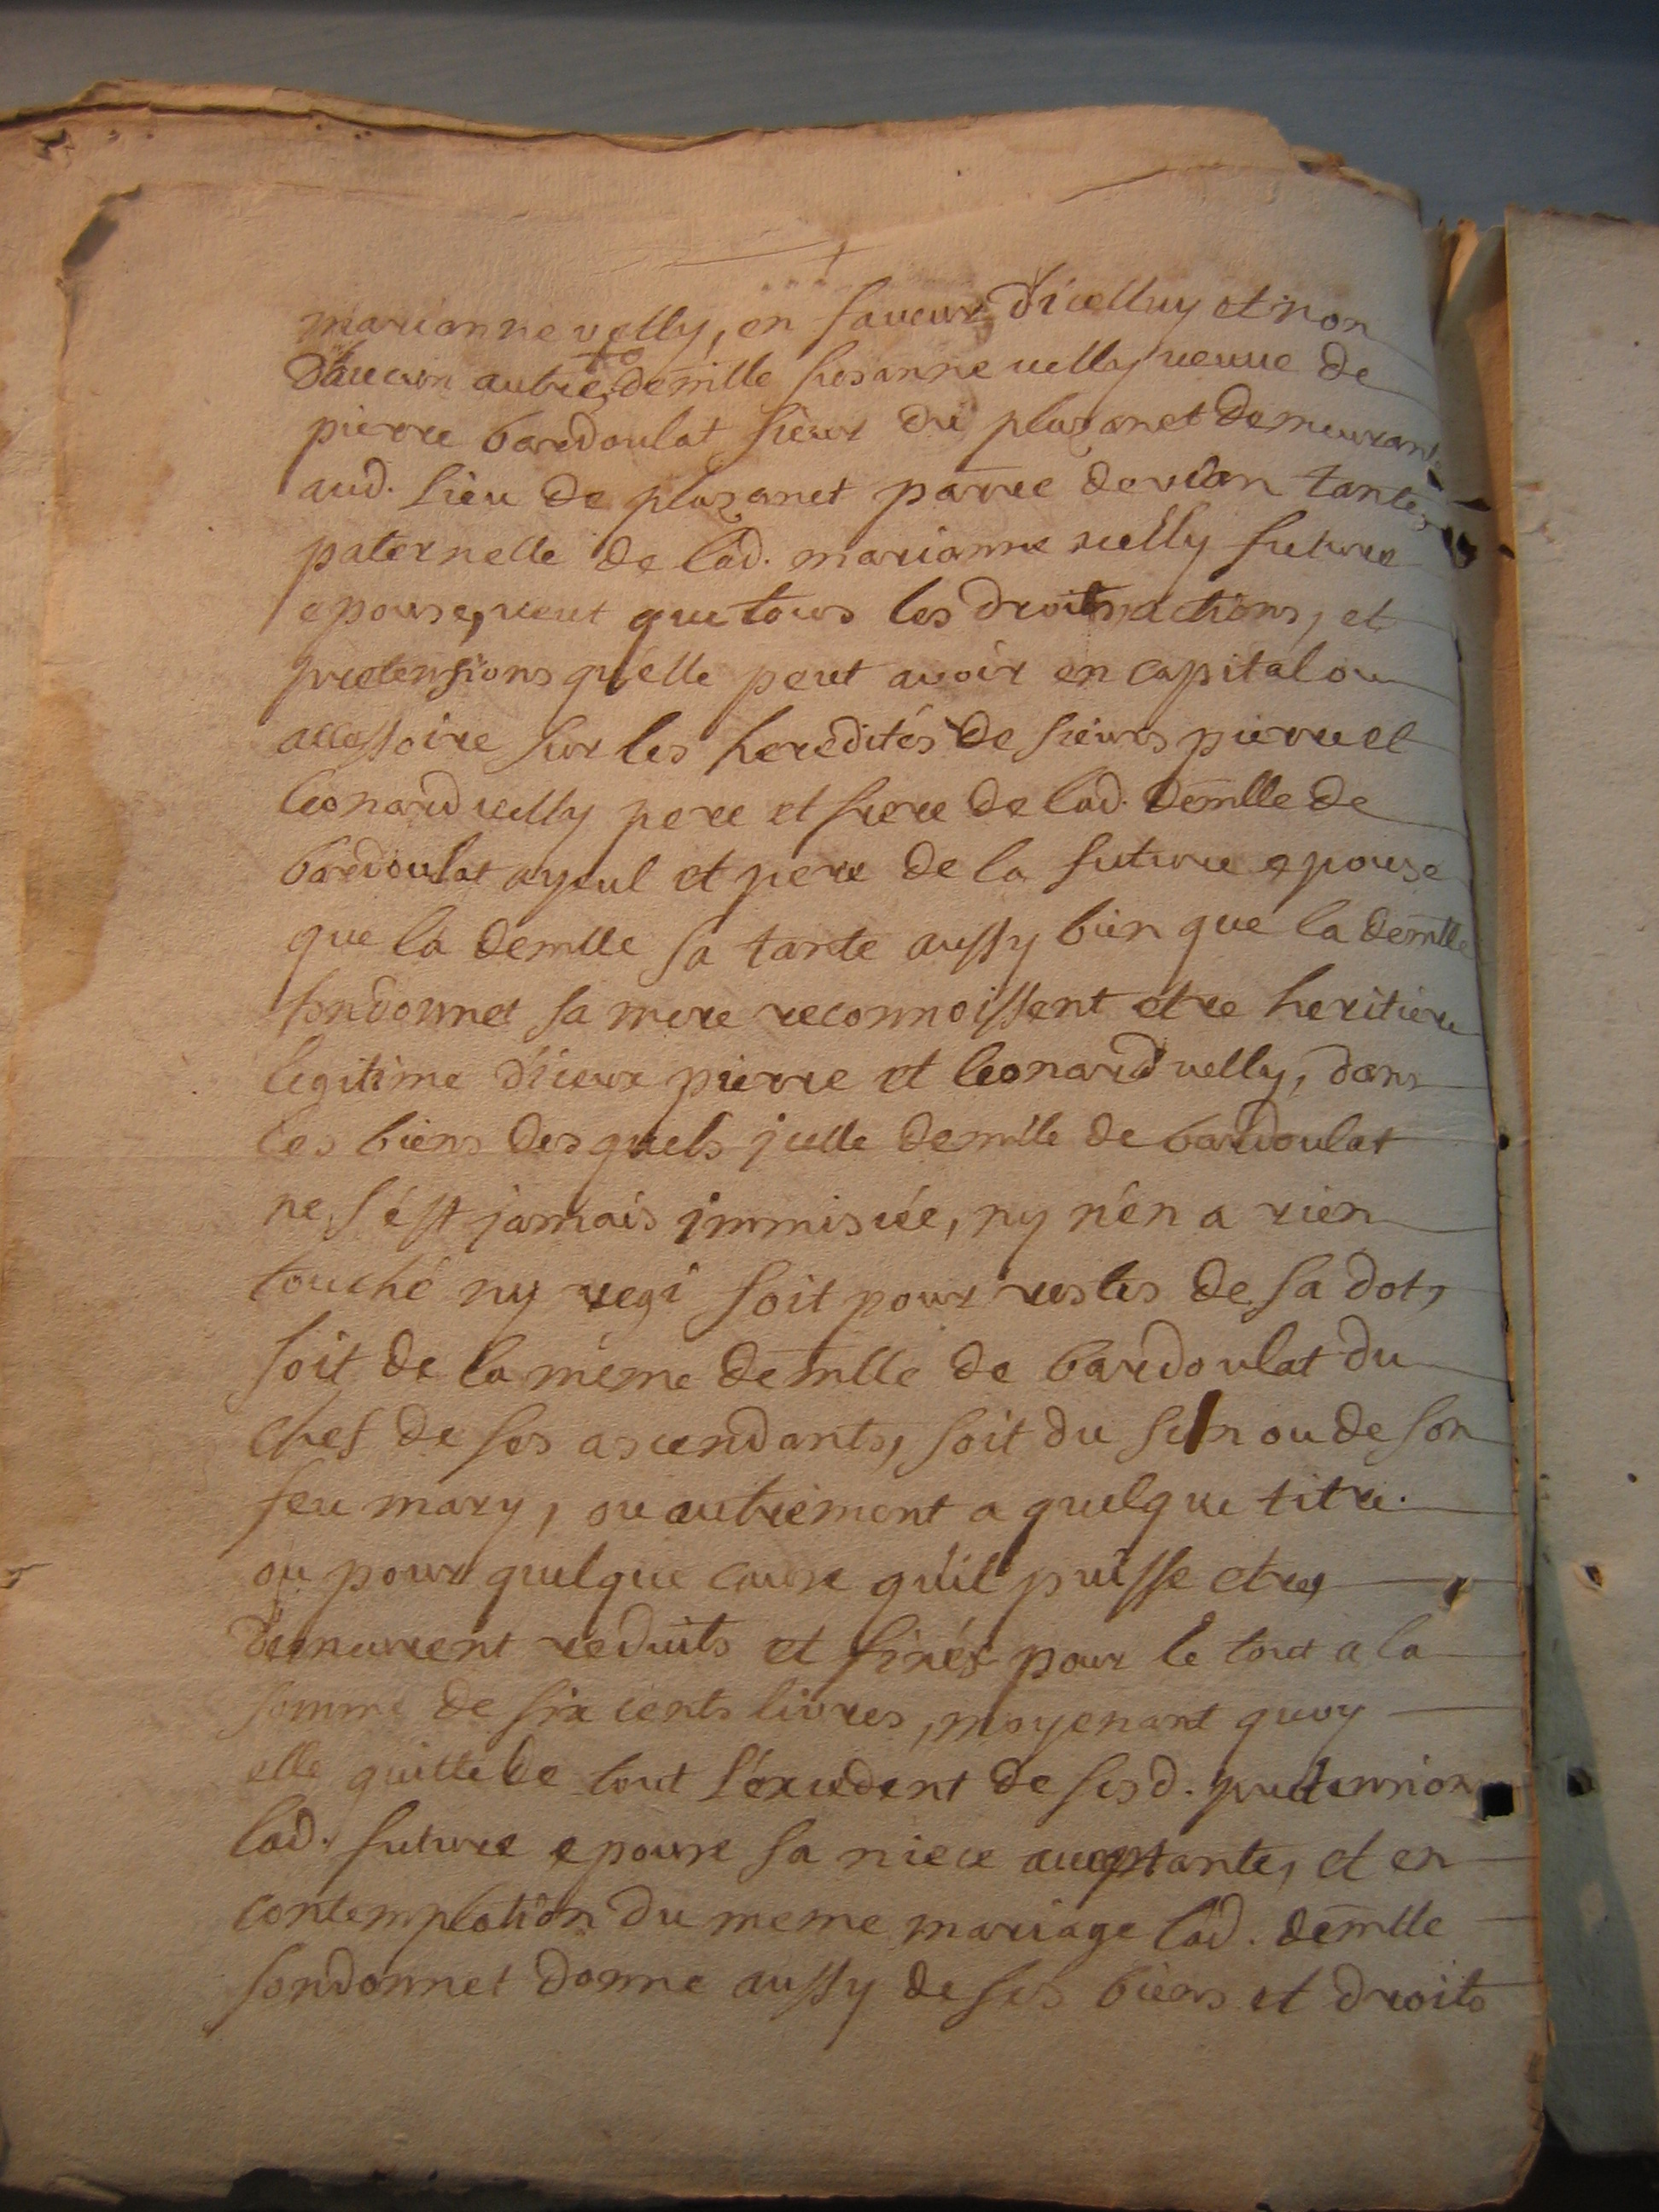 marianne velly, en faveur d'icelluy et non
d'aucun autre, demlle susanne velly veuve de
pierre bardoulat sieur du plazanet demeurant
aud. lieu de plazanet parre tante
paternelle de lad. marianne velly future
epouse, veut que tous les droits, actions, et
pretensions qu'elle peut avoir en capital ou
accessoire sur les heredités de sieurs pierre et
leonard velly pere et frere de lad. demlle de
bardoulat ayeul et pere de la future epouse
que la demlle sa tante aussy bien que la demlle
sondonnet sa mere reconnoissent etre heritiere
legitime d'iceux pierre et leonard velly, dans
les biens desquels jcelle demlle de bardoulat
ne s'est jamais immiscée, ny n'en a rien
touché ny regi soit pour restes de sa dot,
soit de la méme demlle de bardoulat du
chef de ses ascendants, soit du sien ou de son
feu mary, ou autrement a quelque titre
ou pour quelque cause qu'il puisse etre,
demeurent reduits et fixés pour le tout a la
somme de six cents livres, moyenant quoy
elle quitte de tout l'excedent de sesd. pretensions
lad. future epouse sa niece acceptante, et en
contemplation du meme mariage lad. demlle
sondonnet donne aussy de ses biens et droits